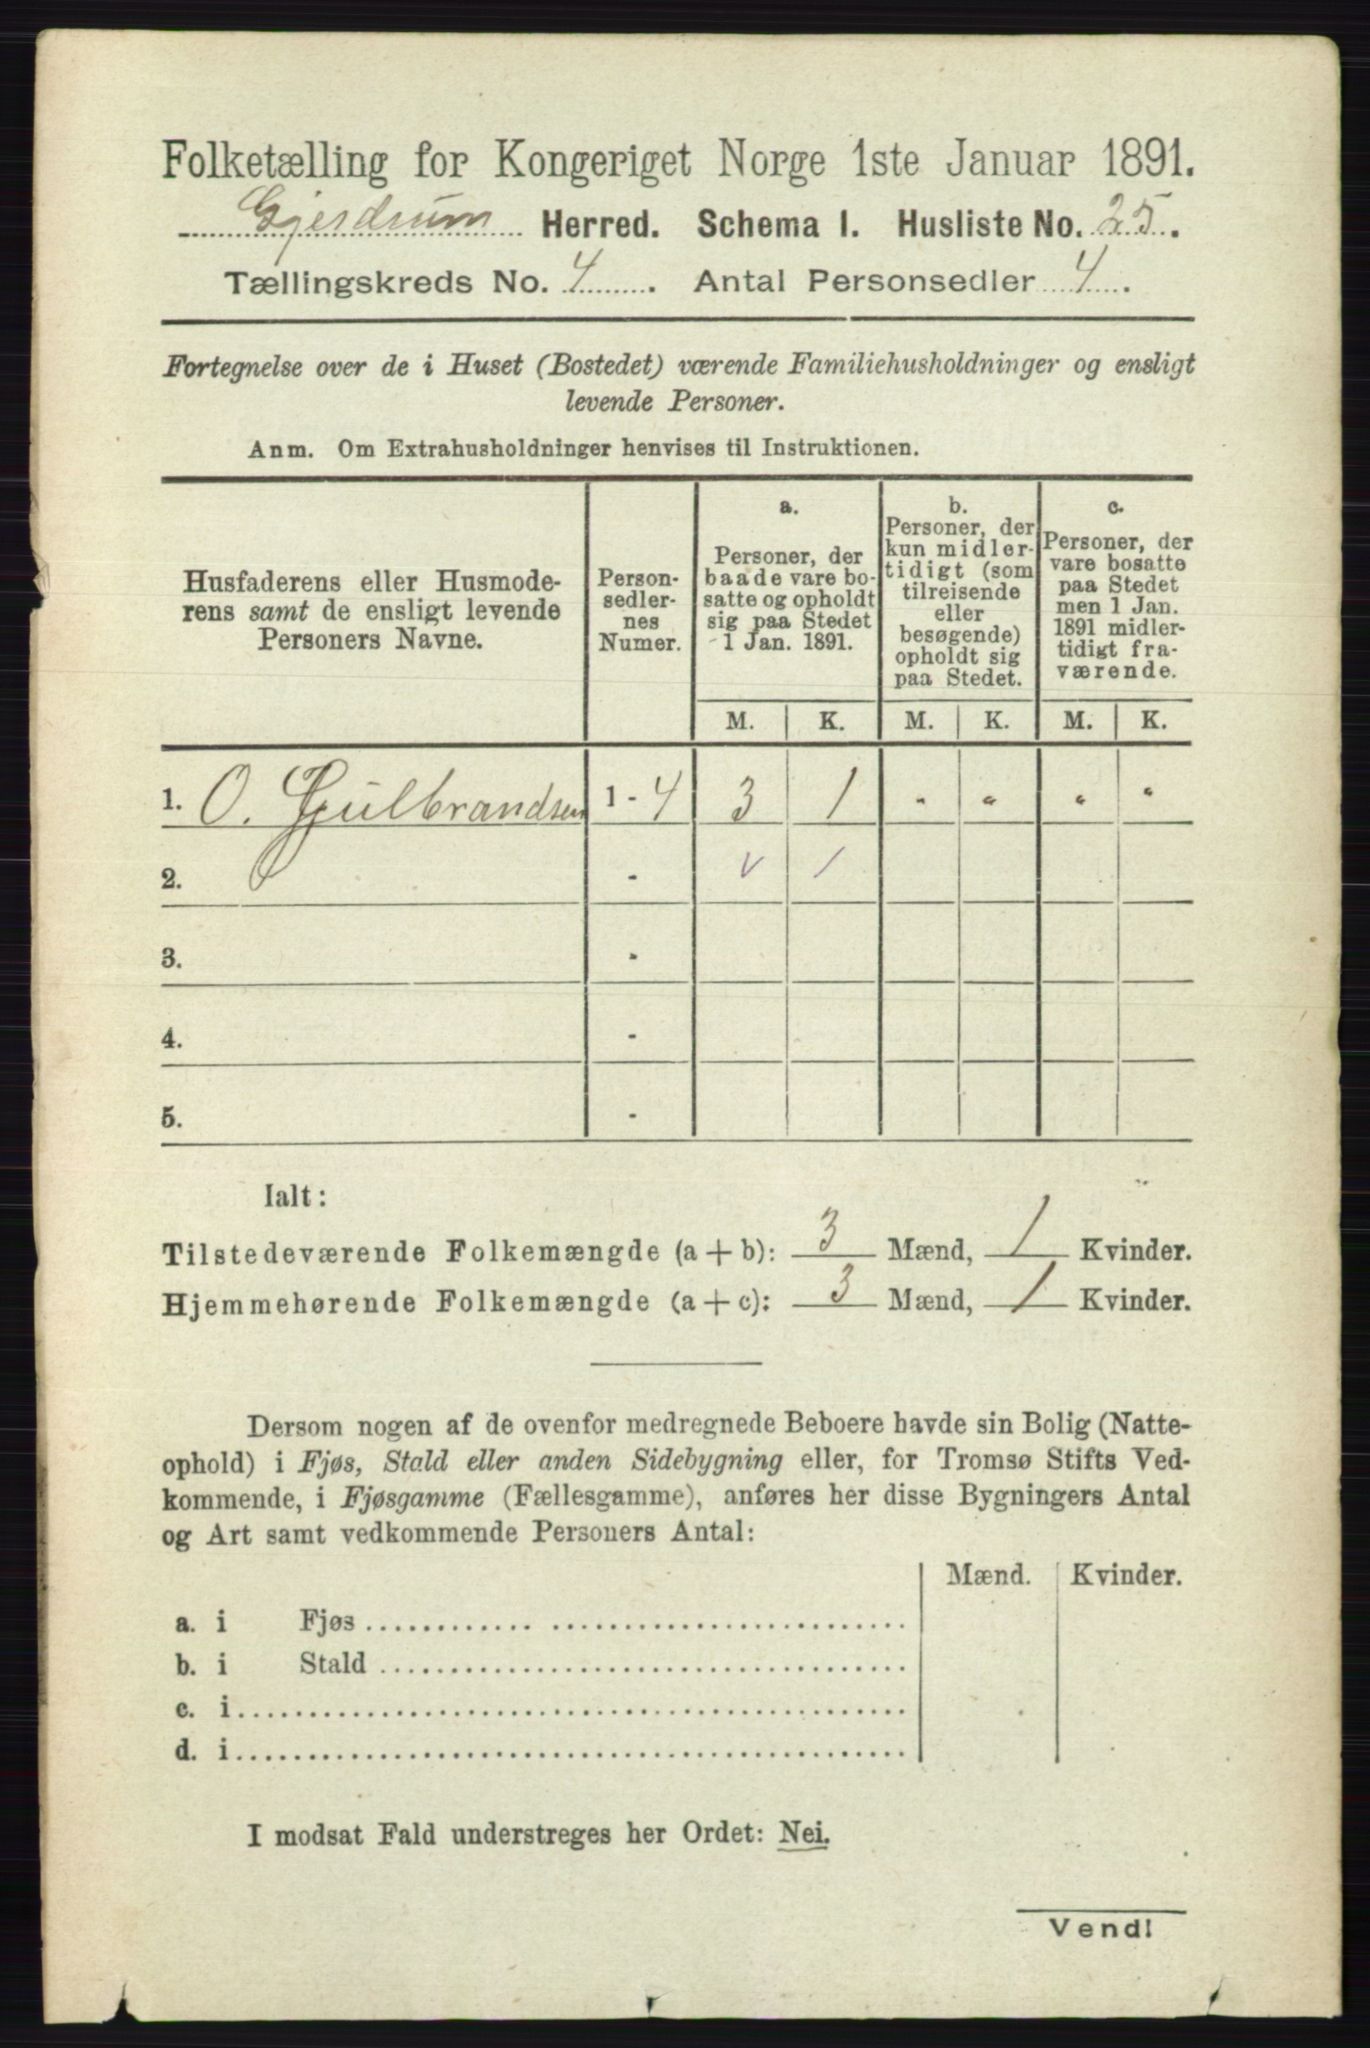 Folketælling for Kongeriget Norge 1ste Januar 1891.
Gjerdrum Herred. Schema I. Husliste No. 25.
Tællingskreds No. 4. Antal Personsedler 4.
Fortegnelse over de i Huset (Bostedet) værende Familiehusholdninger og ensligt
levende Personer.
Anm. Om Extrahusholdninger henvises til Instruktionen.
Husfaderens eller Husmode-
rens samt de ensligt levende
Personers Navne.
Person-
sedler-
nes
Numer.
a.
Personer, der
baade vare bo-
satte og opholdt
sig paa Stedet
1 Jan. 1891.
b.
Personer, der
kun midler-
tidigt (som
tilreisende
eller
besøgende)
opholdt sig
paa Stedet.
c.
Personer, der
vare bosatte
paa Stedet
men 1 Jan.
1891 midler-
tidigt fra-
værende.
M. K. M. K. M. K.
1. O. Gulbrandsen 1 - 4 3 1 " " " "
2. -
3. -
4. -
5. -
Ialt:
Tilstedeværende Folkemængde (a + b): 3 Mænd, 1 Kvinder.
Hjemmehørende Folkemængde (a + c): 3 Mænd, 1 Kvinder.
Dersom nogen af de ovenfor medregnede Beboere havde sin Bolig (Natte-
ophold) i Fjøs, Stald eller anden Sidebygning eller, for Tromsø Stifts Ved-
kommende, i Fjøsgamme (Fællesgamme), anføres her disse Bygningers Antal
og Art samt vedkommende Personers Antal:
Mænd. Kvinder.
a. i Fjøs
b. i Stald
c. i
d. i
I modsat Fald understreges her Ordet: Nei.
Vend!